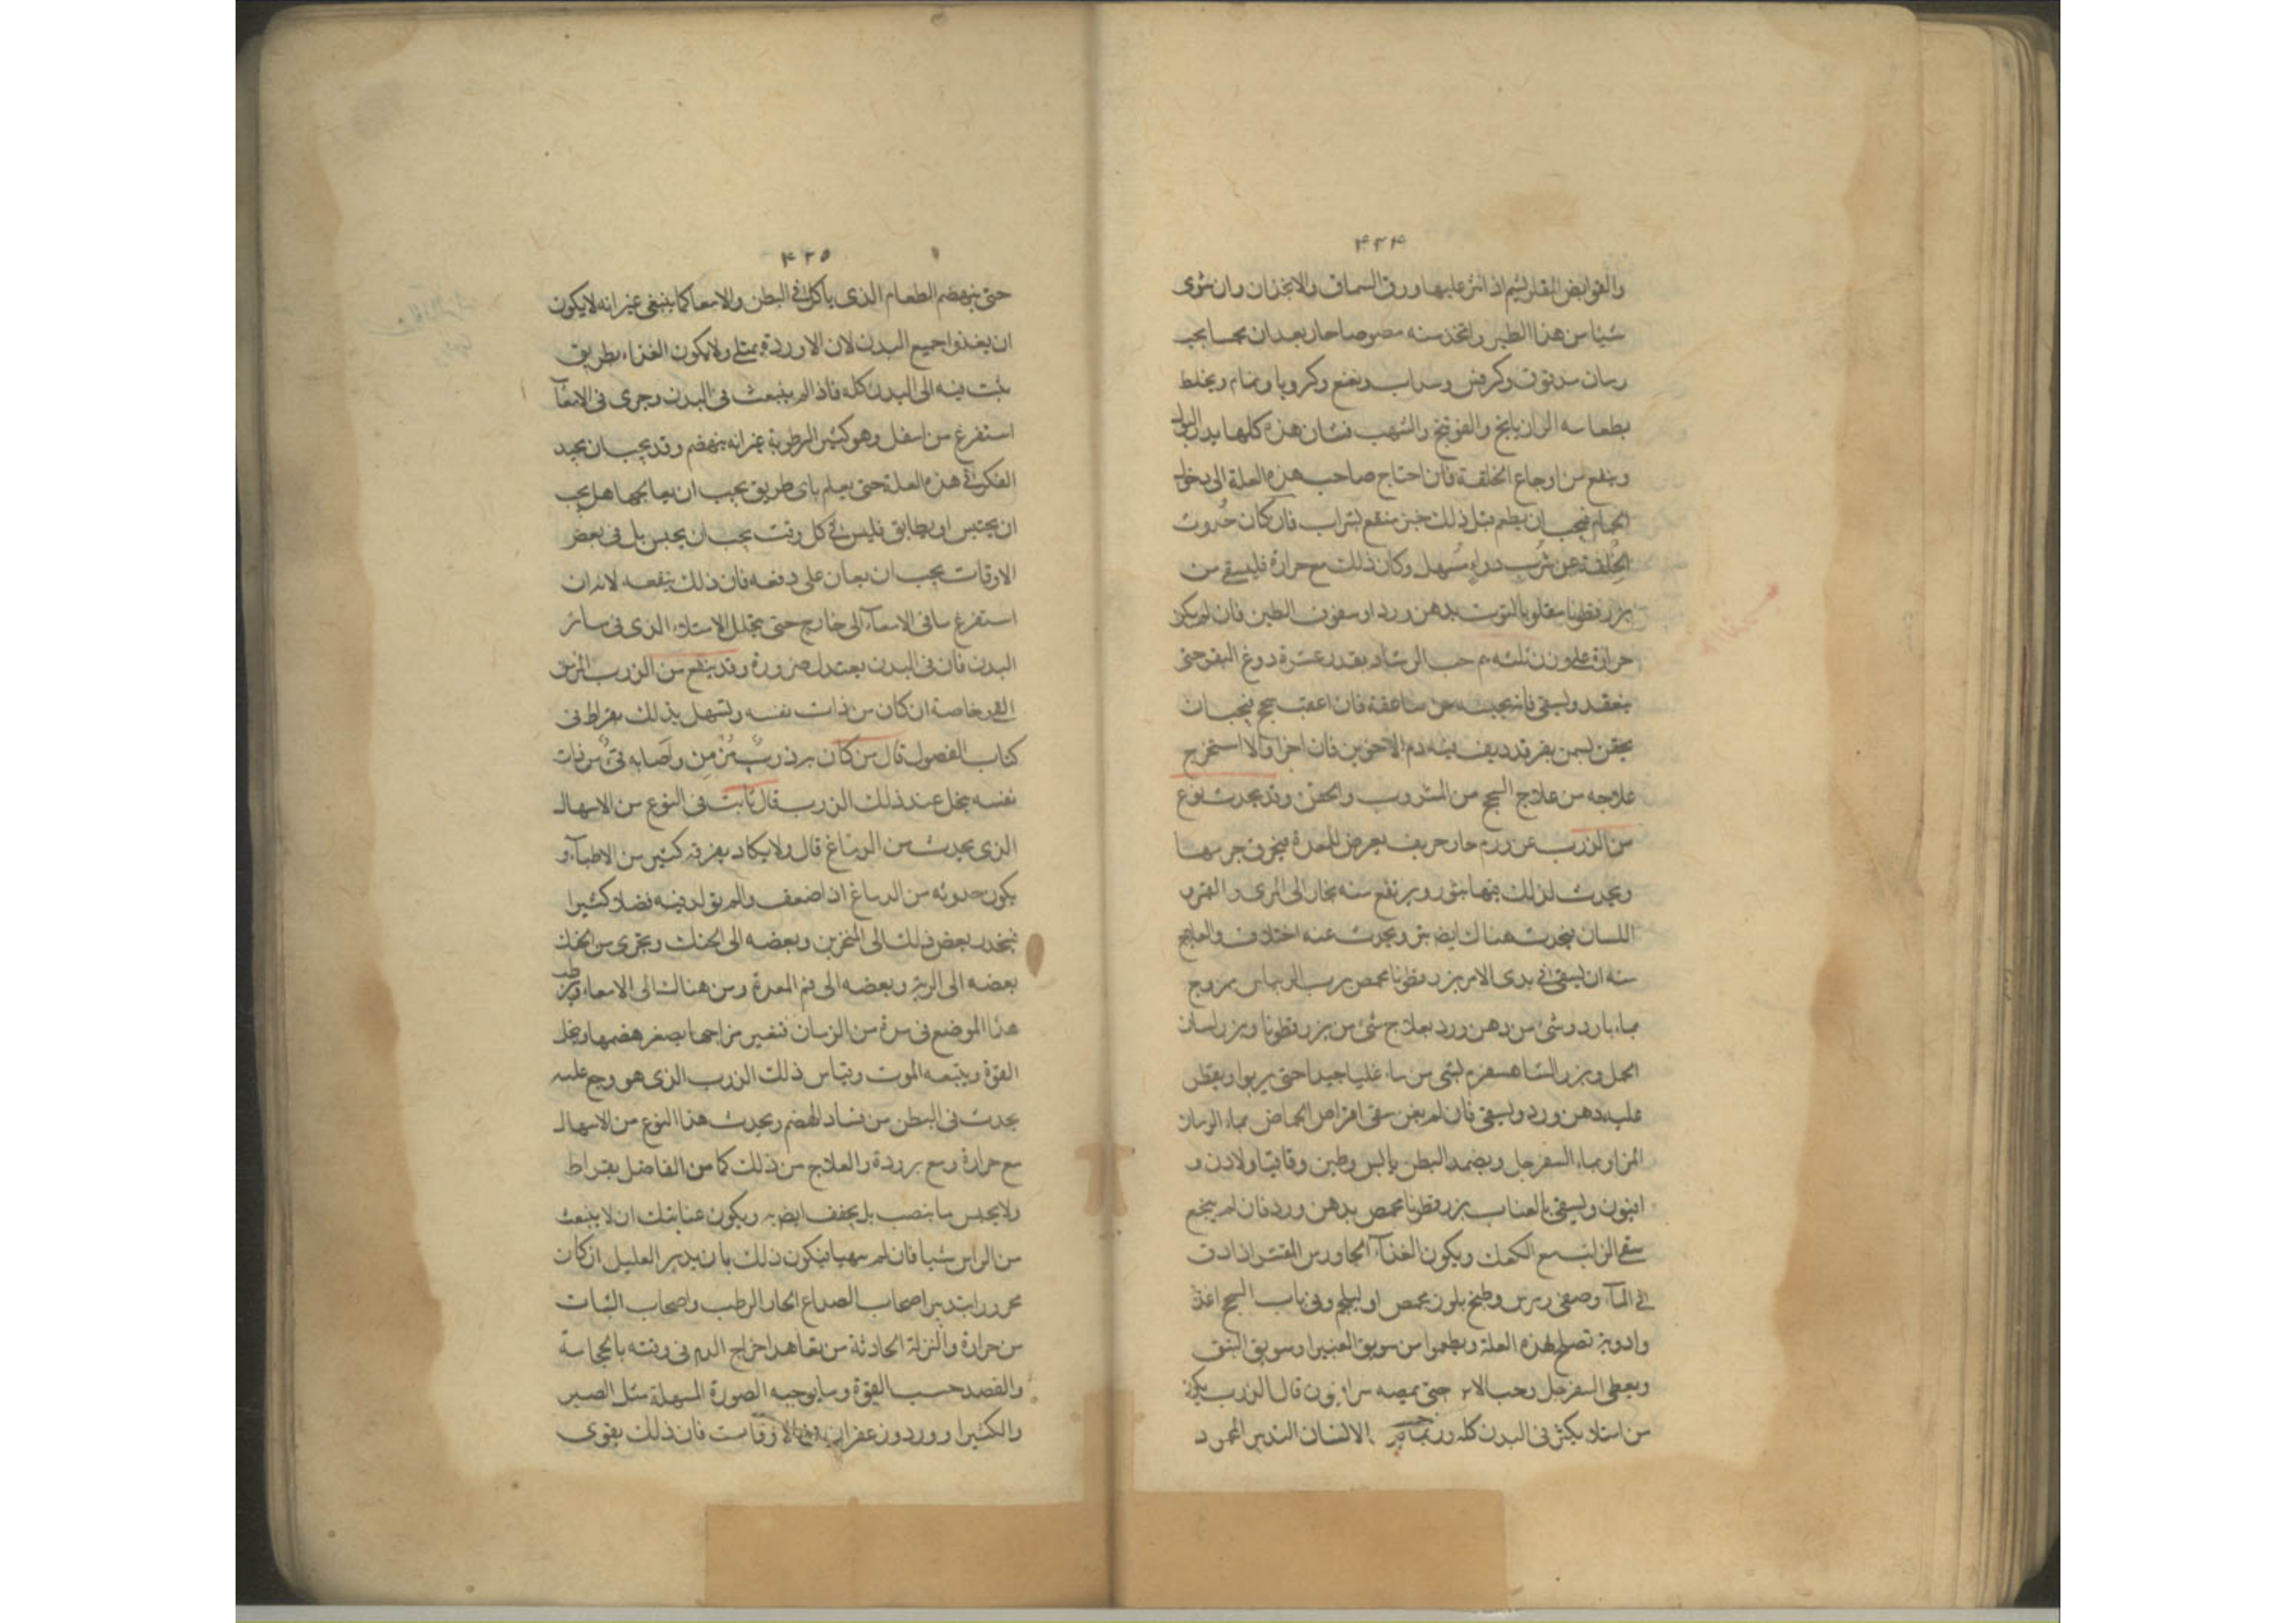 ۴۲۴
والقوابض المقلر لسيم اذ انثر عليها ورق السماق والانجذان وان شوى
شيا من هذا الطير واتخذ منه مصوصا حار بعد ان
رمان مدقوق وكرفس وسداب ونعنع وكرويا ونمام ويخلط
بطعامه الرازيانج والفوتنج فشان هذه كلها يدر البول
وينفع من اوجاع الخلفة فان احتاج صاحب هذه العلة الى دخول
الحمام فيجب ان يطعم قبل ذلك خبز منقع بشراب فان كان حدوث
الخلفة عن شرب دواء مسهل وكان ذلك مع حرارة فليسقى من
بزر قطونا مقلوا بالتوت بدهن ورد او سفوف الطين فان لم يكن
حرارة على وزن ثلثه م حب الرشاد بقدر عشرة دوغ البقر حتى
ينعقد ويسقى فانه يحبسه من ساعته فان اعقب سحج فيجب ان
يحقن بسمن بقر قد ديف فيه دم الاخوين فان اجزا والا استخرج
علاجه من علاج السحج من المشروب والحقن وقد يحدث نوع
من الزرب عن ورم حار حريف يعرض للمعدة فيحرق جرمها
ويحدث لذلك فيها بثور ويرتفع منه بخار الى المرى والفم و
اللسان فيحدث هناك ايضا بثر ويحدث عنه اختلاف والعلاج
منه ان يسقى في بدى الامر بزر قطونا محمص برب الريباس بزوج
بماء بارد وشئ من دهن ورد بعلاج شئ من بزر قطونا وبزر لسان
الحمل وبزر الشاهسفرم بشى من ماء غليا جيدا حتى يربوا ويقطر
عليه دهن ورد ويسقى فان لم يغن سقى اقراص الحماض بماء الرمان
المز او بماء السفرجل ويضمد البطن بالبن وطين وقاقيا ولادن و
افيون ويسقى بالعناب بزر قطونا محمص بدهن ورد فان لم ينجع
سقى الرائب مع الكعك ويكون الغذآ الجاورس المقشر اذا دق
في المآ وصفى ومرس وطبخ بلوز محمص او وفى باب السحج اغذية
وادوية تصلح لهذه العلة ويطعموا من سويق الغبيرا وسويق النبق
ويعطى السفرجل وحب الاس حتى يمصه سرافيون قال الزرب يكون
من امتلاء يكثر فى البدن كله وربما الانسان التدبير المحمود
۴۲۵
حتى ينهضم الطعام الذى ياكل في البطن والامعا كما ينبغى غير انه لا يكون
ان يغذوا جميع البدن لان الاوردة يمتلى ولا يكون الغذاء طريق
ينبت فيه الى البدن كله فاذا لم ينبعث فى البدن وجرى فى الامعآ
استفرغ من اسفل وهو كثير الرطوبة غير انه ينهضم وقد يجب ان يجيد
الفكر في هذه العلة حتى يعلم باى طريق يجب ان يعالجها هل يجب
ان يحتبس او يطابق فليس في كل وقت يجب ان يحبس بل فى بعض
الاوقات يجب ان يعان على دفعه فان ذلك ينفعه لانه ان
استفرغ ما فى الامعآ الى خارج حتى يتحلل الامتلاء الذى فى سائر
البدن فان فى البدن يعتدل ضرورة وقد ينفع من الزرب المزمن
القى خاصة ان كان من ذات نفسه ويشهد بذلك بقراط فى
كتاب الفصول قال من كان برذرب مزمن واصابه قئ من ذات
نفسه يخل عند ذلك الزرب قال ثابت فى النوع من الاسهال
الذى يحدث من الدماغ قال ولا يكاد يعرفه كثير من الاطبآ و
يكون حدوثه من الدماغ اذا ضعف والم يتولد فيه فضلا كثيرا
فينحدر بعض ذلك الى المنخرين وبعضه الى الحنك ويجرى من الحنك
بعضه الى الرية وبعضه الى فم المعدة ومن هناك الى الامعاء
هذا الموضع فى مدة من الزمان فتغير مزاجها بصغر هضمها ويخل
القوة ويتبعه الموت وقياس ذلك الزرب الذى هو وجع عليه
يحدث فى البطن من فساد الهضم ويحدث هذا النوع من الاسهال
مع حرارة ومع برودة والعلاج من ذلك كما من الفاضل بقراط
ولا يحبس ما ينصب بل يجفف ايض به ويكون عنايتك ان لا ينبعث
من الراس شيا فان لم يتهيا فيكون ذلك بان يدبر العليل ان كان
محرورا بتدبير اصحاب الصداع الحار الرطب واصحاب السبات
من حرارة والنزلة الحادثة من تعاهد اخراج الدم فى وقته بالحجامة
والفصد حسب القوة وما يوجبه الصورة المسهلة مثل الصبر
والكثيرا وورد وزعفران الاوقات فان ذلك يقوى